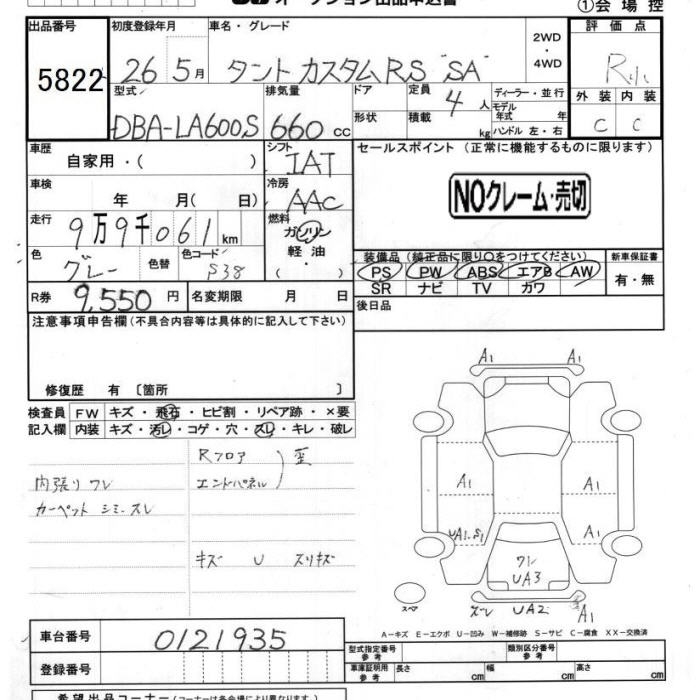 ①会場控
出品番号 初度登録年月 車名・グレード 2WD ・ 4WD 評価点
5822 26 5月 タント カスタムRS "SA" R
型式 排気量 ドア 定員 4人 ディーラー・並行 外装 内装
DBA-LA600S 660 cc 形状 積載 kg モデル年式 年 C C
ハンドル 左・右
車歴 自家用・( ) シフト IAT セールスポイント (正常に機能するものに限ります)
車検 年 月( 日) 冷房 AAC NOクレーム・売切
走行 9万9千061km 燃料 ガソリン 軽油 ・( )
色 グレー 色替 色コード S38
装備品 (純正品に限り○をつけてください) 新車保証書
PS PW ABS エアB AW 有・無
SR ナビ TV カワ
R券 9,550円 名変期限 月 日 後日品
注意事項申告欄(不具合内容等は具体的に記入して下さい)
修復歴 有 〔箇所 〕
検査員 FW キズ・飛石・ヒビ割・リペア跡・×要
記入欄 内装 キズ・汚レ・コゲ・穴・スレ・キレ・破レ
Rフロア
エンドパネル 歪
内張りワレ
カーペット シミ.スレ
キズ U スリキズ
A1 A1
A1 A1
UA1.S1 A1
ワレ
UA3
スペア ズレ UA2 A1
A−キズ E−エクボ U−凹み W−補修跡 S−サビ C−腐食 XX−交換済
車台番号 0121935
登録番号
型式指定番号 参考 類別区分番号 参考
車庫証明用 参考 長さ cm 幅 cm 高さ cm
希望出品コーナー(コーナーは各会場により異なります。)